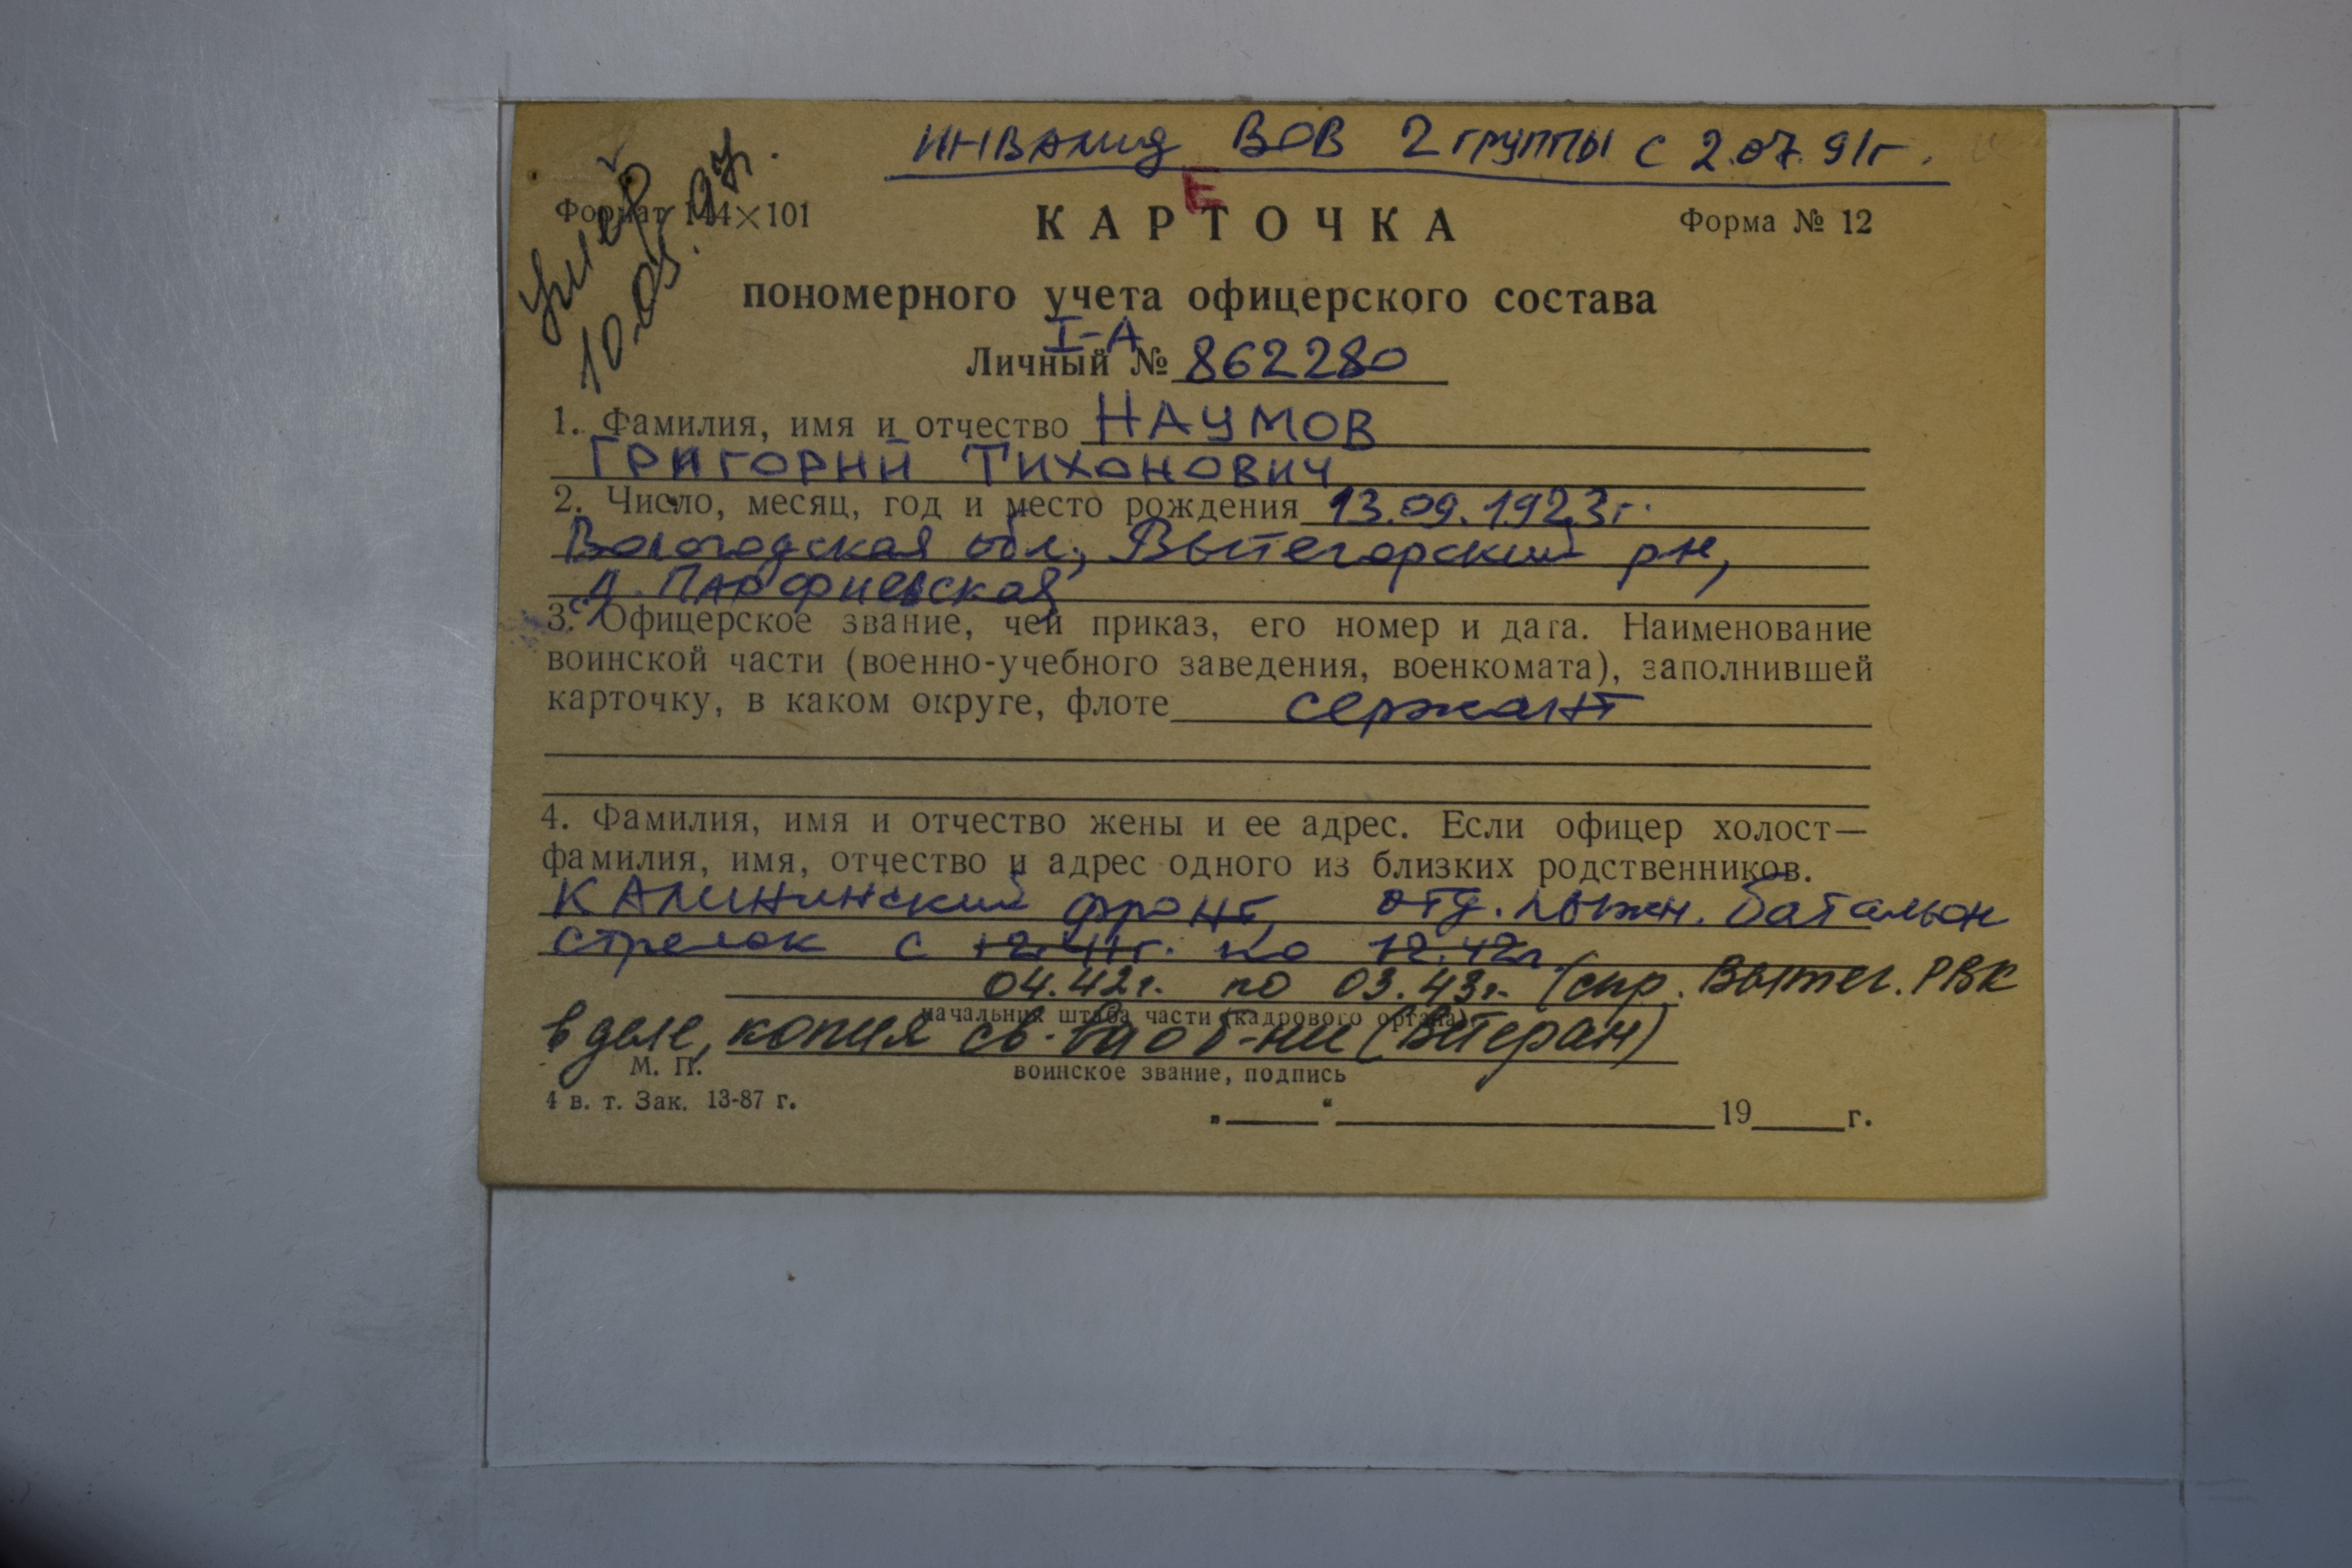 ИНВАЛИД ВОВ 2 группы с 2.07.91г.
умер
10.05.97г.
Е
Формат 144×101
КАРТОЧКА
Форма № 12
пономерного учета офицерского состава
I-А
Личный № 862280
1. Фамилия, имя и отчество НАУМОВ
ГРИГОРИЙ ТИХОНОВИЧ
2. Число, месяц, год и место рождения 13.09.1923г.
Вологодская обл., Вытегорский рн,
д. Парфиевская
3. Офицерское звание, чей приказ, его номер и дата. Наименование
воинской части (военно-учебного заведения, военкомата), заполнившей
карточку, в каком округе, флоте сержант
4. Фамилия, имя и отчество жены и ее адрес. Если офицер холост—
фамилия, имя, отчество и адрес одного из близких родственников.
Калининский фронт, отд. лыжн. батальон
стрелок с 12.41г. по 12.42г.
04.42г. по 03.43г. (спр. Вытег. РВК
начальник штаба части (кадрового органа)
в деле, копия св-ва о б-ни (Ветеран)
М. П.
воинское звание, подпись
4 в. т. Зак. 13-87 г.
„ “ 19 г.